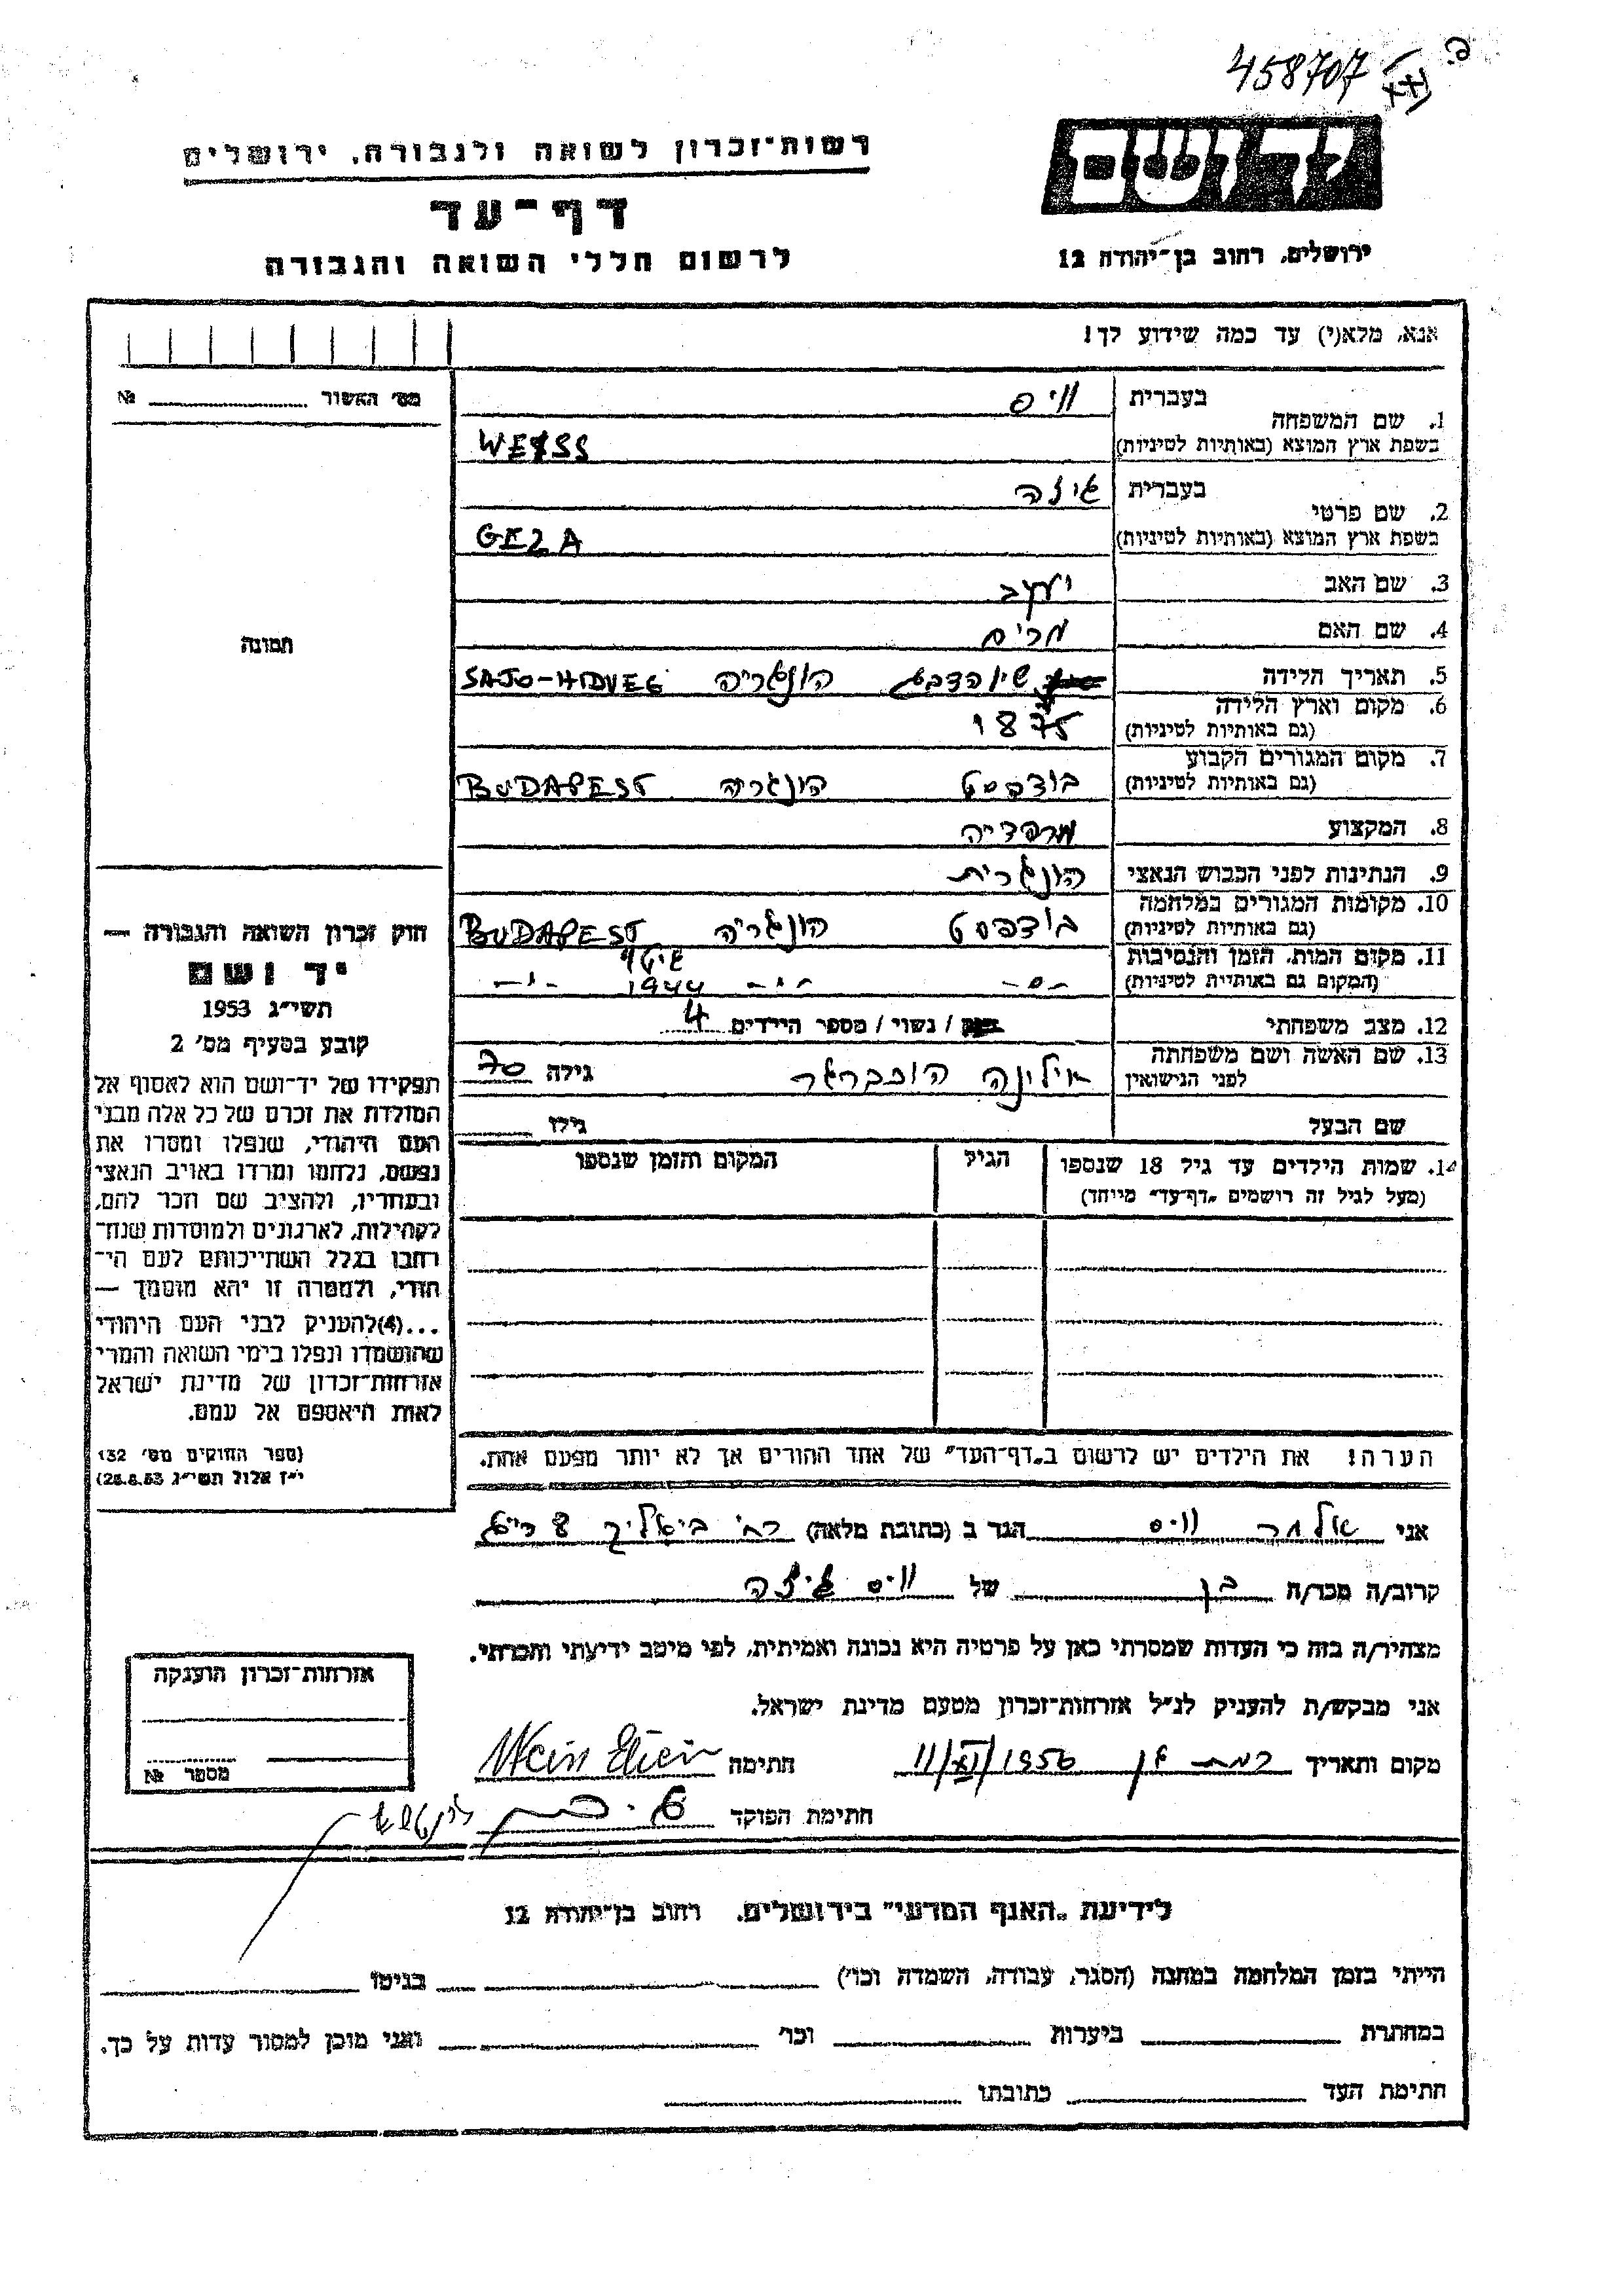 458707
יד ושם
רשות־זכרון לשואה ולגבורה, ירושלים
דף־עד
לרשום חללי השואה והגבורה
ירושלים, רחוב בן־יהודה 12
אנא, מלא(י) עד כמה שידוע לך!
מס' האשור № 
1. שם המשפחה
בעברית וייס
בשפת ארץ המוצא (באותיות לטיניות) WEISS
2. שם פרטי
בעברית גיזה
בשפת ארץ המוצא (באותיות לטיניות) GEZA
3. שם האב יעקב
4. שם האם מרים
5. תאריך הלידה
הונגריה SAJO-HIDVEG
6. מקום וארץ הלידה
(גם באותיות לטיניות) 1875
7. מקום המגורים הקבוע
(גם באותיות לטיניות) בודפסט הונגריה BUDAPEST
8. המקצוע
9. הנתינות לפני הכבוש הנאצי הונגרית
10. מקומות המגורים במלחמה
(גם באותיות לטיניות) בודפסט הונגריה BUDAPEST
11. מקום המות, הזמן והנסיבות
(המקום גם באותיות לטיניות) 1944
12. מצב משפחתי / נשוי / מספר הילדים 4
13. שם האשה ושם משפחתה
לפני הנישואין אילונה גילה 70
שם הבעל גילו
14. שמות הילדים עד גיל 18 שנספו
(מעל לגיל זה רושמים „דף־עד" מייחד)
הגיל
המקום והזמן שנספו
הערה! את הילדים יש לרשום ב„דף־העד" של אחד ההורים אך לא יותר מפעם אחת.
תמונה
חוק זכרון השואה והגבורה —
יד ושם
תשי״ג 1953
קובע בסעיף מס' 2
תפקידו של יד־ושם הוא לאסוף אל
המולדת את זכרם של כל אלה מבני
העם היהודי, שנפלו ומסרו את
נפשם, נלחמו ומרדו באויב הנאצי
ובעוזריו, ולהציב שם וזכר להם,
לקהילות, לארגונים ולמוסדות שנח־
רבו בגלל השתייכותם לעם הי־
הודי, ולמטרה זו יהא מוסמך —
...(4)להעניק לבני העם היהודי
שהושמדו ונפלו בימי השואה והמרי
אזרחות־זכרון של מדינת ישראל
לאות היאספם אל עמם.
(ספר החוקים מס' 132
י״ז אלול תשי״ג 28.8.53)
אני אלמר וייס הגר ב (כתובת מלאה) רח' ביאליק 8
קרוב/ה מכר/ה בן של וייס גיזה
מצהיר/ה בזה כי העדות שמסרתי כאן על פרטיה היא נכונה ואמיתית, לפי מיטב ידיעתי והכרתי.
אני מבקש/ת להעניק לנ״ל אזרחות־זכרון מטעם מדינת ישראל.
מקום ותאריך רמת גן 11/XI/1956 חתימה
חתימת הפוקד
אזרחות־זכרון הוענקה
מספר №
לידיעת „האגף המדעי" בירושלים, רחוב בן־יהודה 12
הייתי בזמן המלחמה במחנה (הסגר, עבודה, השמדה וכו') בגיטו
במחתרת ביערות וכו' ואני מוכן למסור עדות על כך.
חתימת העד כתובתו